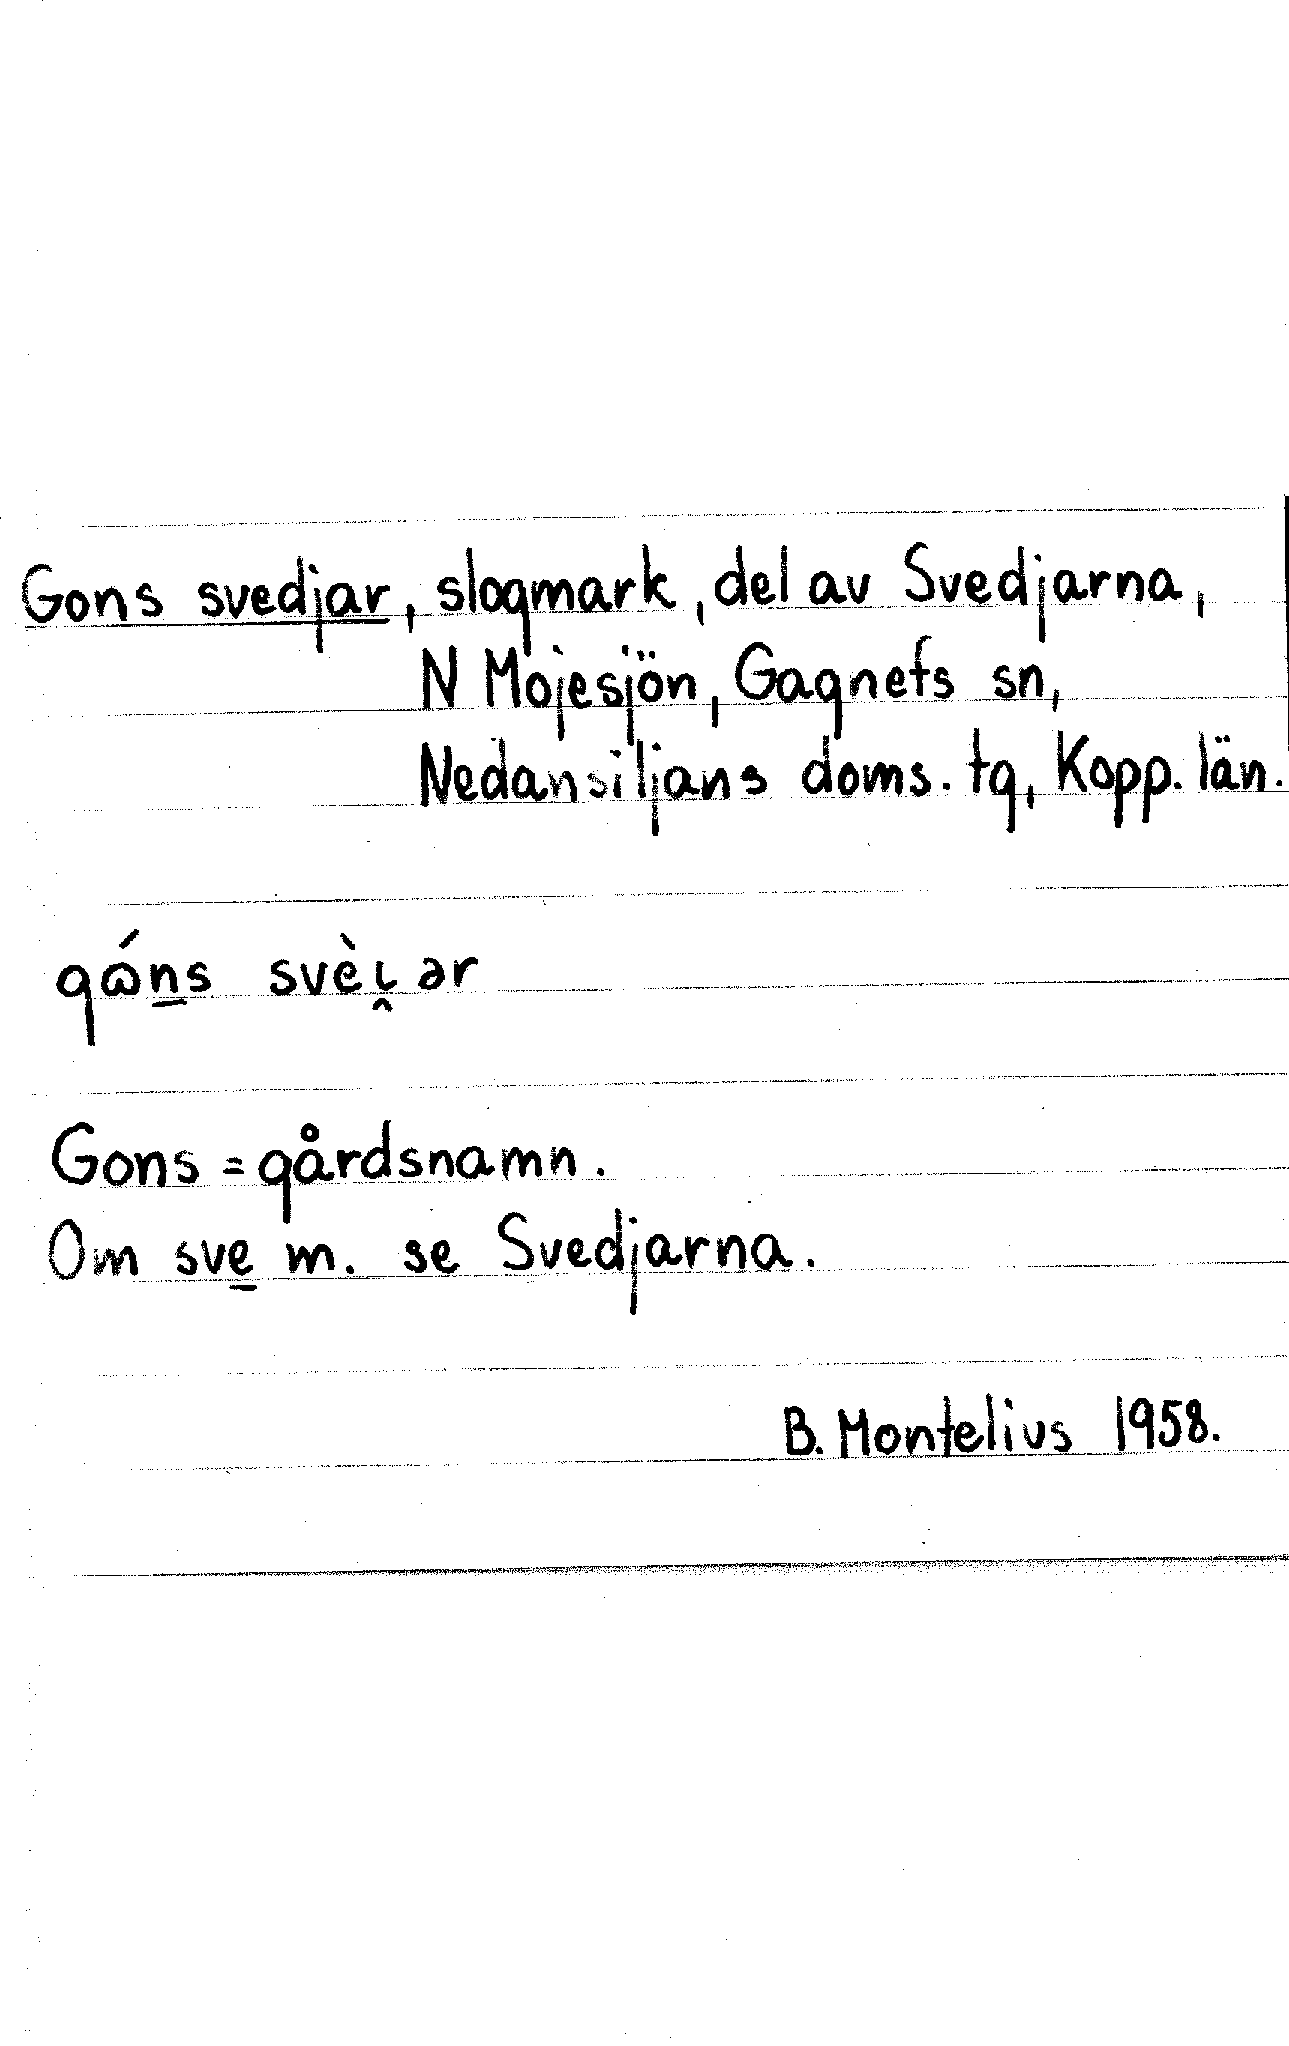 Gons svedjar, slogmark, del av Svedjarna,
N Mojesjön, Gagnefs sn,
Nedansiljans doms. tg, Kopp. län.
gɷ́n̲s svèi̯ər
Gons = gårdsnamn.
Om sve̲ m. se Svedjarna.
B. Montelius 1958.